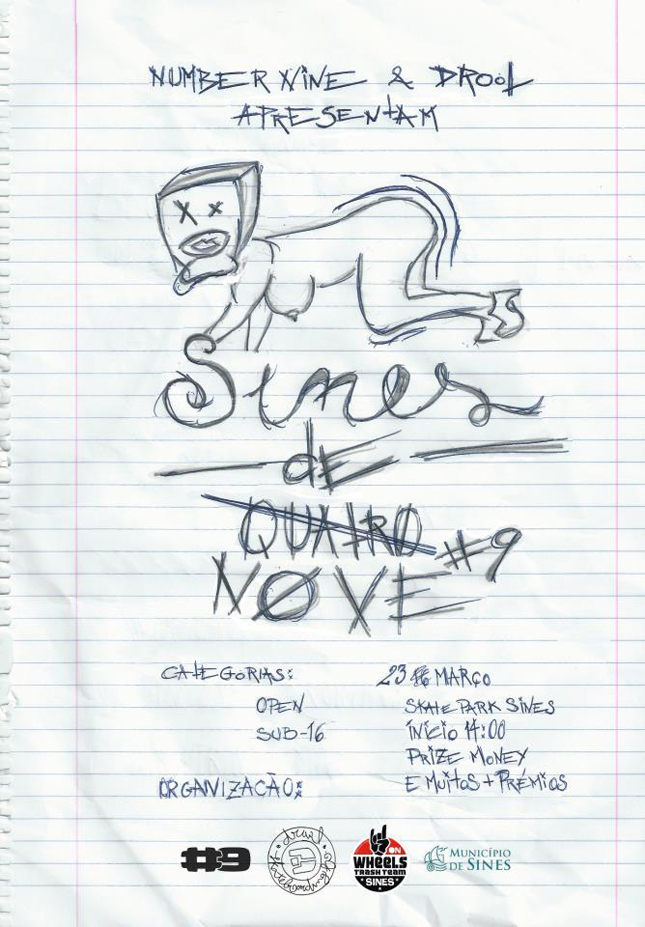 NUMBER NINE & DROOL
APRESENTAM
Sines
DE
QUATRO
NOVE #9
CATEGORIAS:
OPEN
SUB-16
23 DE MARÇO
SKATE PARK SINES
INÍCIO 14:00
PRIZE MONEY
E MUITOS + PRÉMIOS
ORGANIZAÇÃO:
#9
drool
skateboarding
ON
WHEELS
TRASH TEAM
SINES
MUNICÍPIO
DE SINES